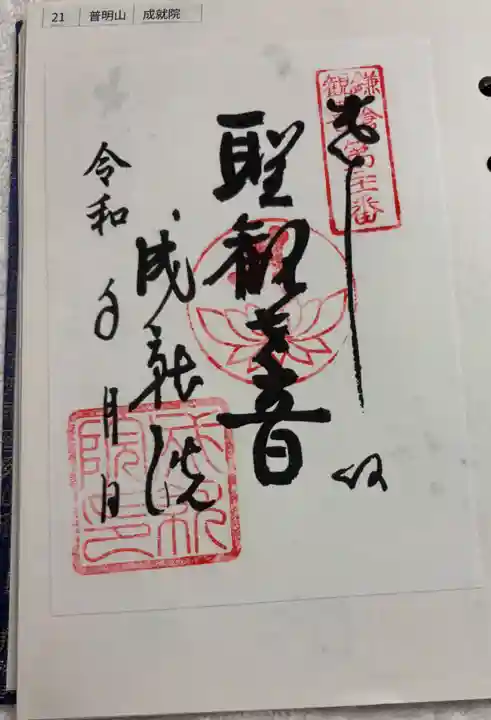 21 普明山 成就院
鎌倉
観音
第廿一番
奉拝
聖観世音
成就院
令和 年 月 日
成就
院印